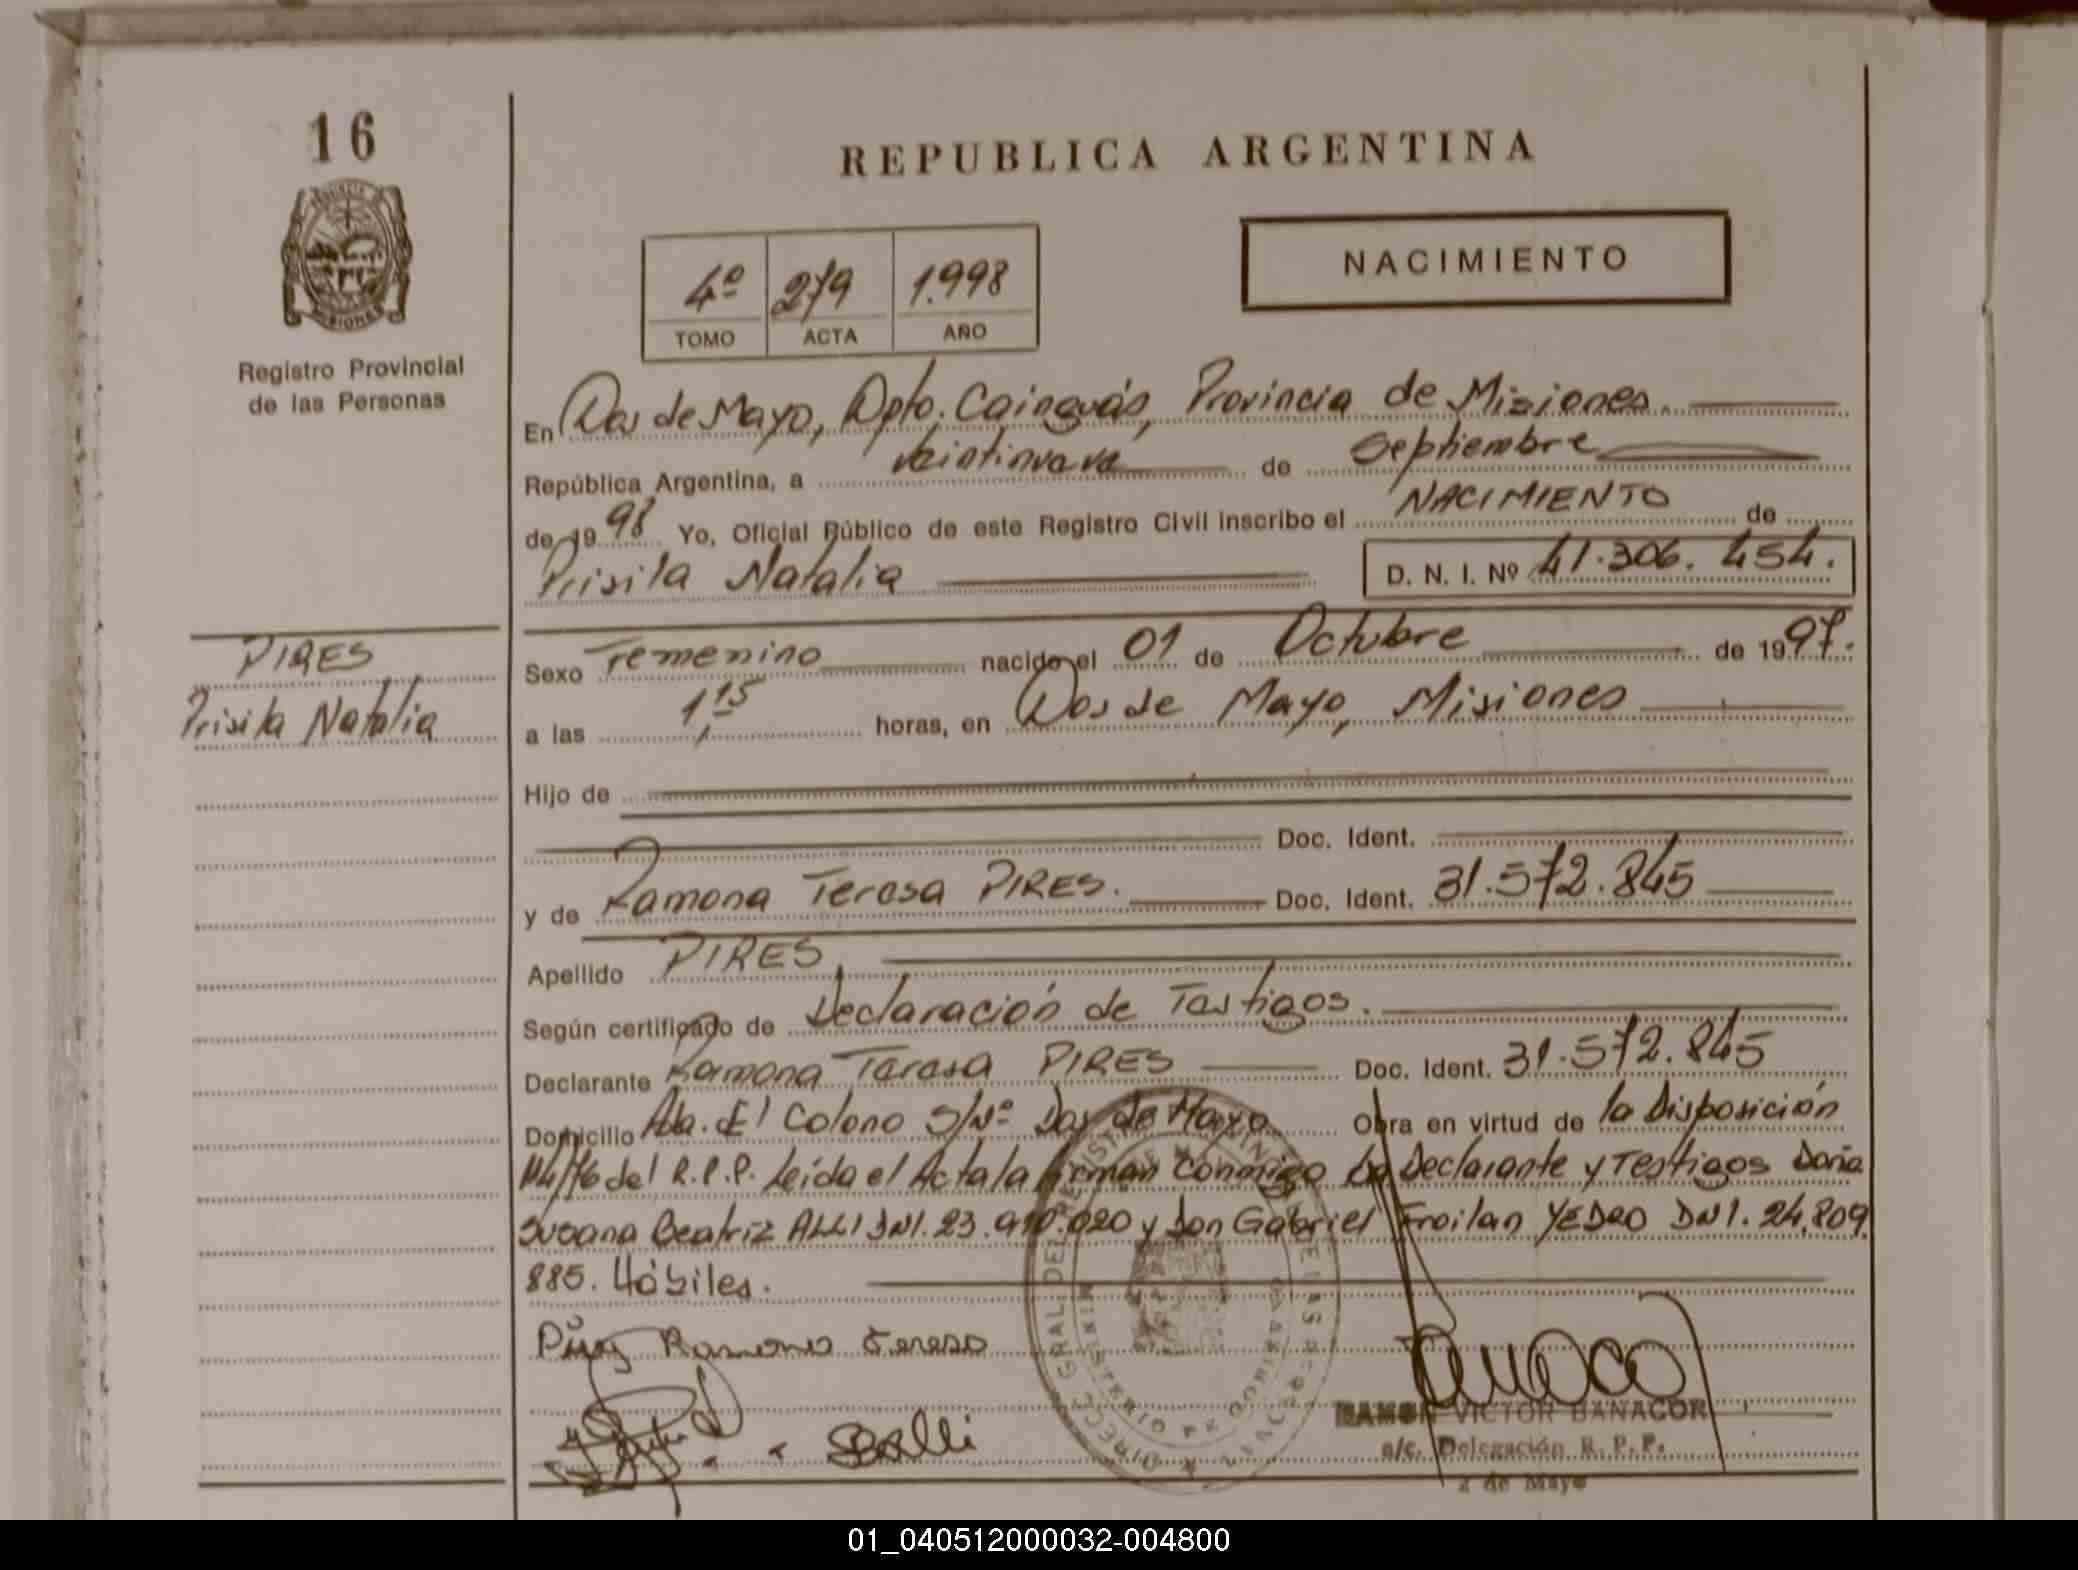 16
REPUBLICA ARGENTINA
NACIMIENTO
4º 279 1.998
TOMO ACTA AÑO
Registro Provincial
de las Personas
En Dos de Mayo, Dpto. Cainguás, Provincia de Misiones.
República Argentina, a veintinueve de Septiembre
de 1998 Yo, Oficial Público de este Registro Civil inscribo el NACIMIENTO de
Prisila Natalia D. N. I. Nº 41.306.454.
PIRES
Prisila Natalia
Sexo Femenino nacido el 01 de Octubre de 1997.
a las 1,15 horas, en Dos de Mayo, Misiones
Hijo de
Doc. Ident.
y de Ramona Teresa PIRES. Doc. Ident. 31.572.845
Apellido PIRES
Según certificado de Declaración de Testigos.
Declarante Ramona Teresa PIRES Doc. Ident. 31.572.845
Domicilio Avda. El Colono S/Nº Dos de Mayo Obra en virtud de la Disposición
114/76 del R.P.P. Leída el Acta la firman conmigo la Declarante y Testigos Doña
Susana Beatriz ALLI DNI. 23. y Don Gabriel Froilan YEDRO DNI. 24.809
885. Hábiles.
Ramona Teresa
SBAlli
RAMON VICTOR BANACOR
a/c. Delegación R. P. P.
2 de Mayo
01_040512000032-004800